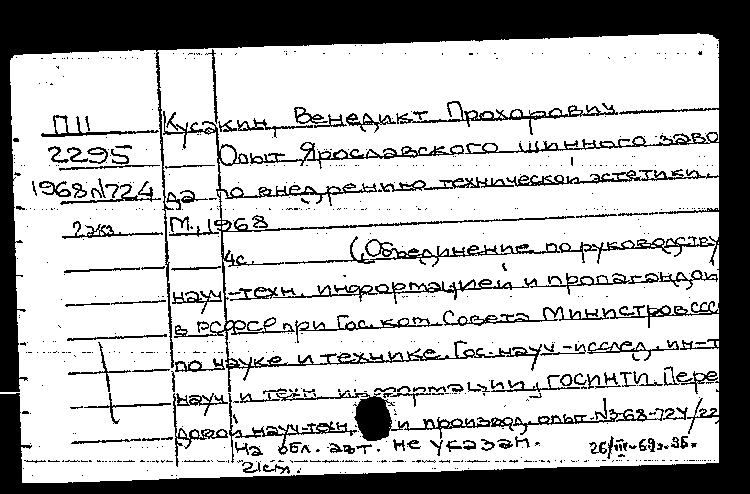 П11 Кусакин, Венедикт Прохорович
2295 Опыт Ярославского шинного заво
1968 N724 да по внедрению технической эстетики.
2 экз. М., 1968
4с. (Объединение по руководству
науч-техн. информацией и пропагандой
в РСФСР при Гос. ком. Совета Министров ССС
по науке и технике. Гос. науч-исслед. ин-т
науч. и техн. информации, ГОСИНТИ. Пере
довой науч-техн. и производ. опыт N3-68-724/22
На обл. авт. не указан.
21см. 26/III-69г.